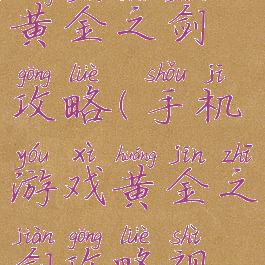 黄金之剑
gōng lüè shǒu jī
攻略(手机
yóu xì huáng jīn zhī
游戏黄金之
jiàn gōng lüè shì
剑攻略视